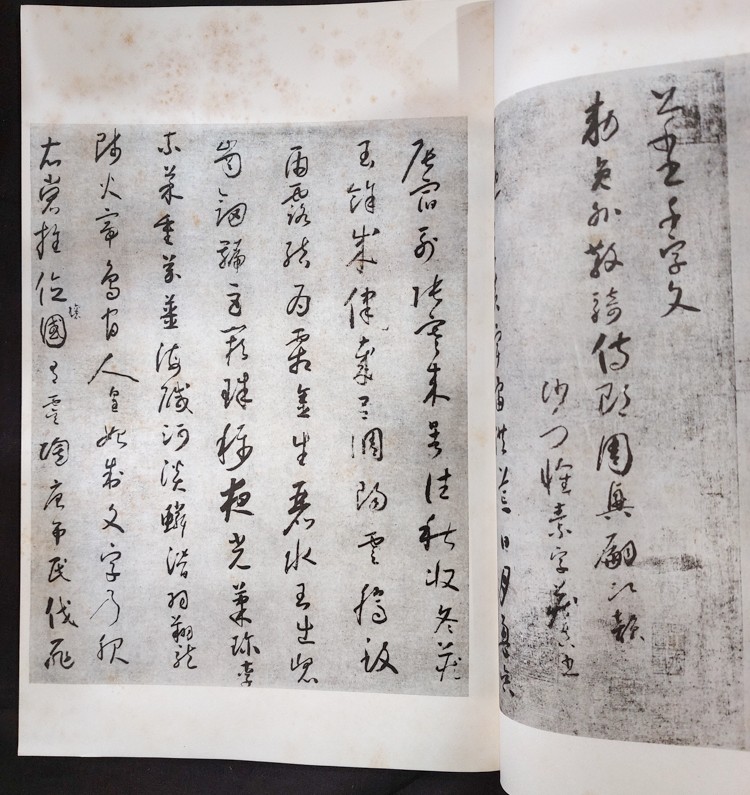 草書千字文
勅員外散騎侍郎周興嗣次韻
沙門懷素字藏真書
宇宙洪荒日月盈昃
辰宿列張寒來暑往秋收冬藏
閏餘成律歲呂調陽雲騰致
雨露結為霜金生麗水玉出崐
崗劍號巨闕珠稱夜光菓珍李
柰菜重芥薑海鹹河淡鱗潛羽翔龍
師火帝鳥官人皇始制文字乃服
衣裳推位讓國有虞陶唐弔民伐罪